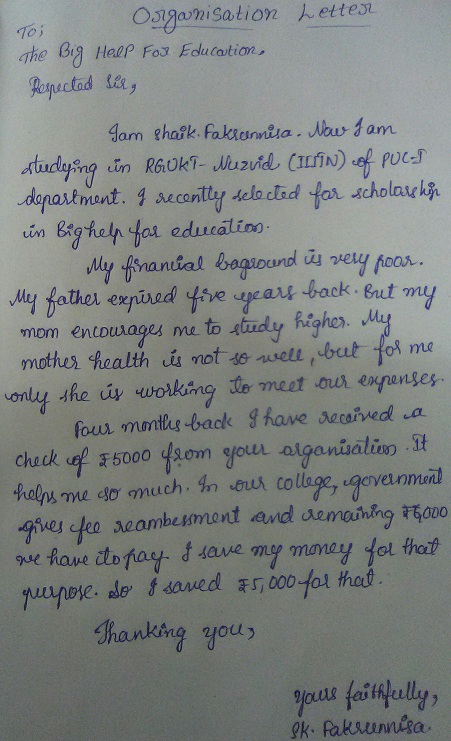 Organisation Letter
To;
The Big Help For Education,
Respected Sir,
Iam Shaik. Fakrunnisa. Now I am
studying in RGUKT- Nuzvid (IIIT N) of PUC-I
department. I recently selected for scholarship
in Bighelp for education.
My financial baground is very poor.
My father expired five years back. But my
mom encourages me to study higher. My
mother health is not so well, but for me
only she is working to meet our expenses.
Four months back I have received a
check of ₹5000 from your organisation. It
helps me so much. In our college, government
gives fee reambessment and remaining ₹6,000
we have to pay. I save my money for that
purpose. So I saved ₹5,000 for that.
Thanking you,
yours faithfully,
SK. Fakrunnisa.